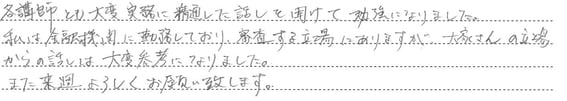 各講師とも大変実務に精通した話しを聞けて勉強になりました。
私は金融機関に勤務しており、審査する立場にありますが、大家さんの立場
からの話しは大変参考になりました。
また来週よろしくお願い致します。